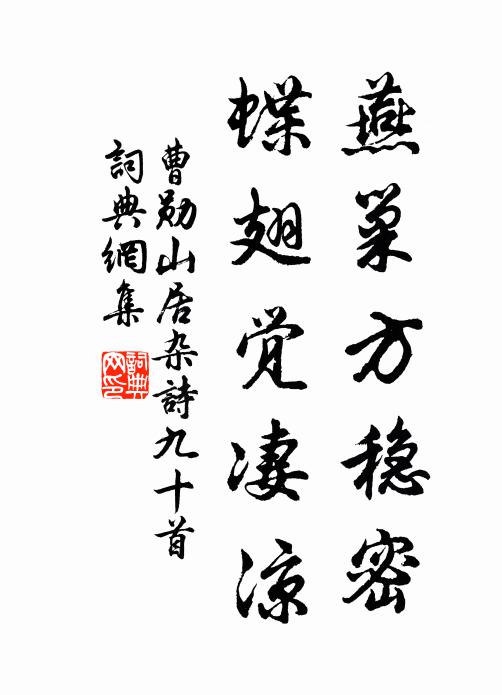 燕巢方稳密
蝶翅觉凄凉
曹勋山居杂詩九十首
詞典網集
詞典网印